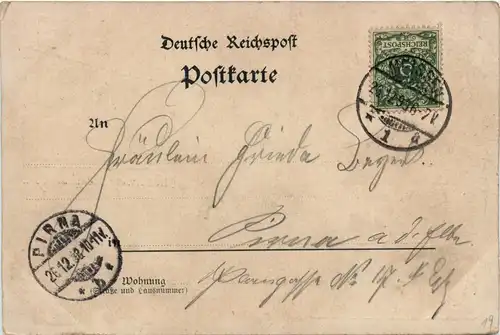 Deutsche Reichspost
Postkarte
REICHSPOST
An
Fräulein Frieda Beyer
in Pirna a. d. Elbe
Wohnung
(Straße und Hausnummer)
No 17. I Et
PIRNA
26.12.
* b *
1 a
19